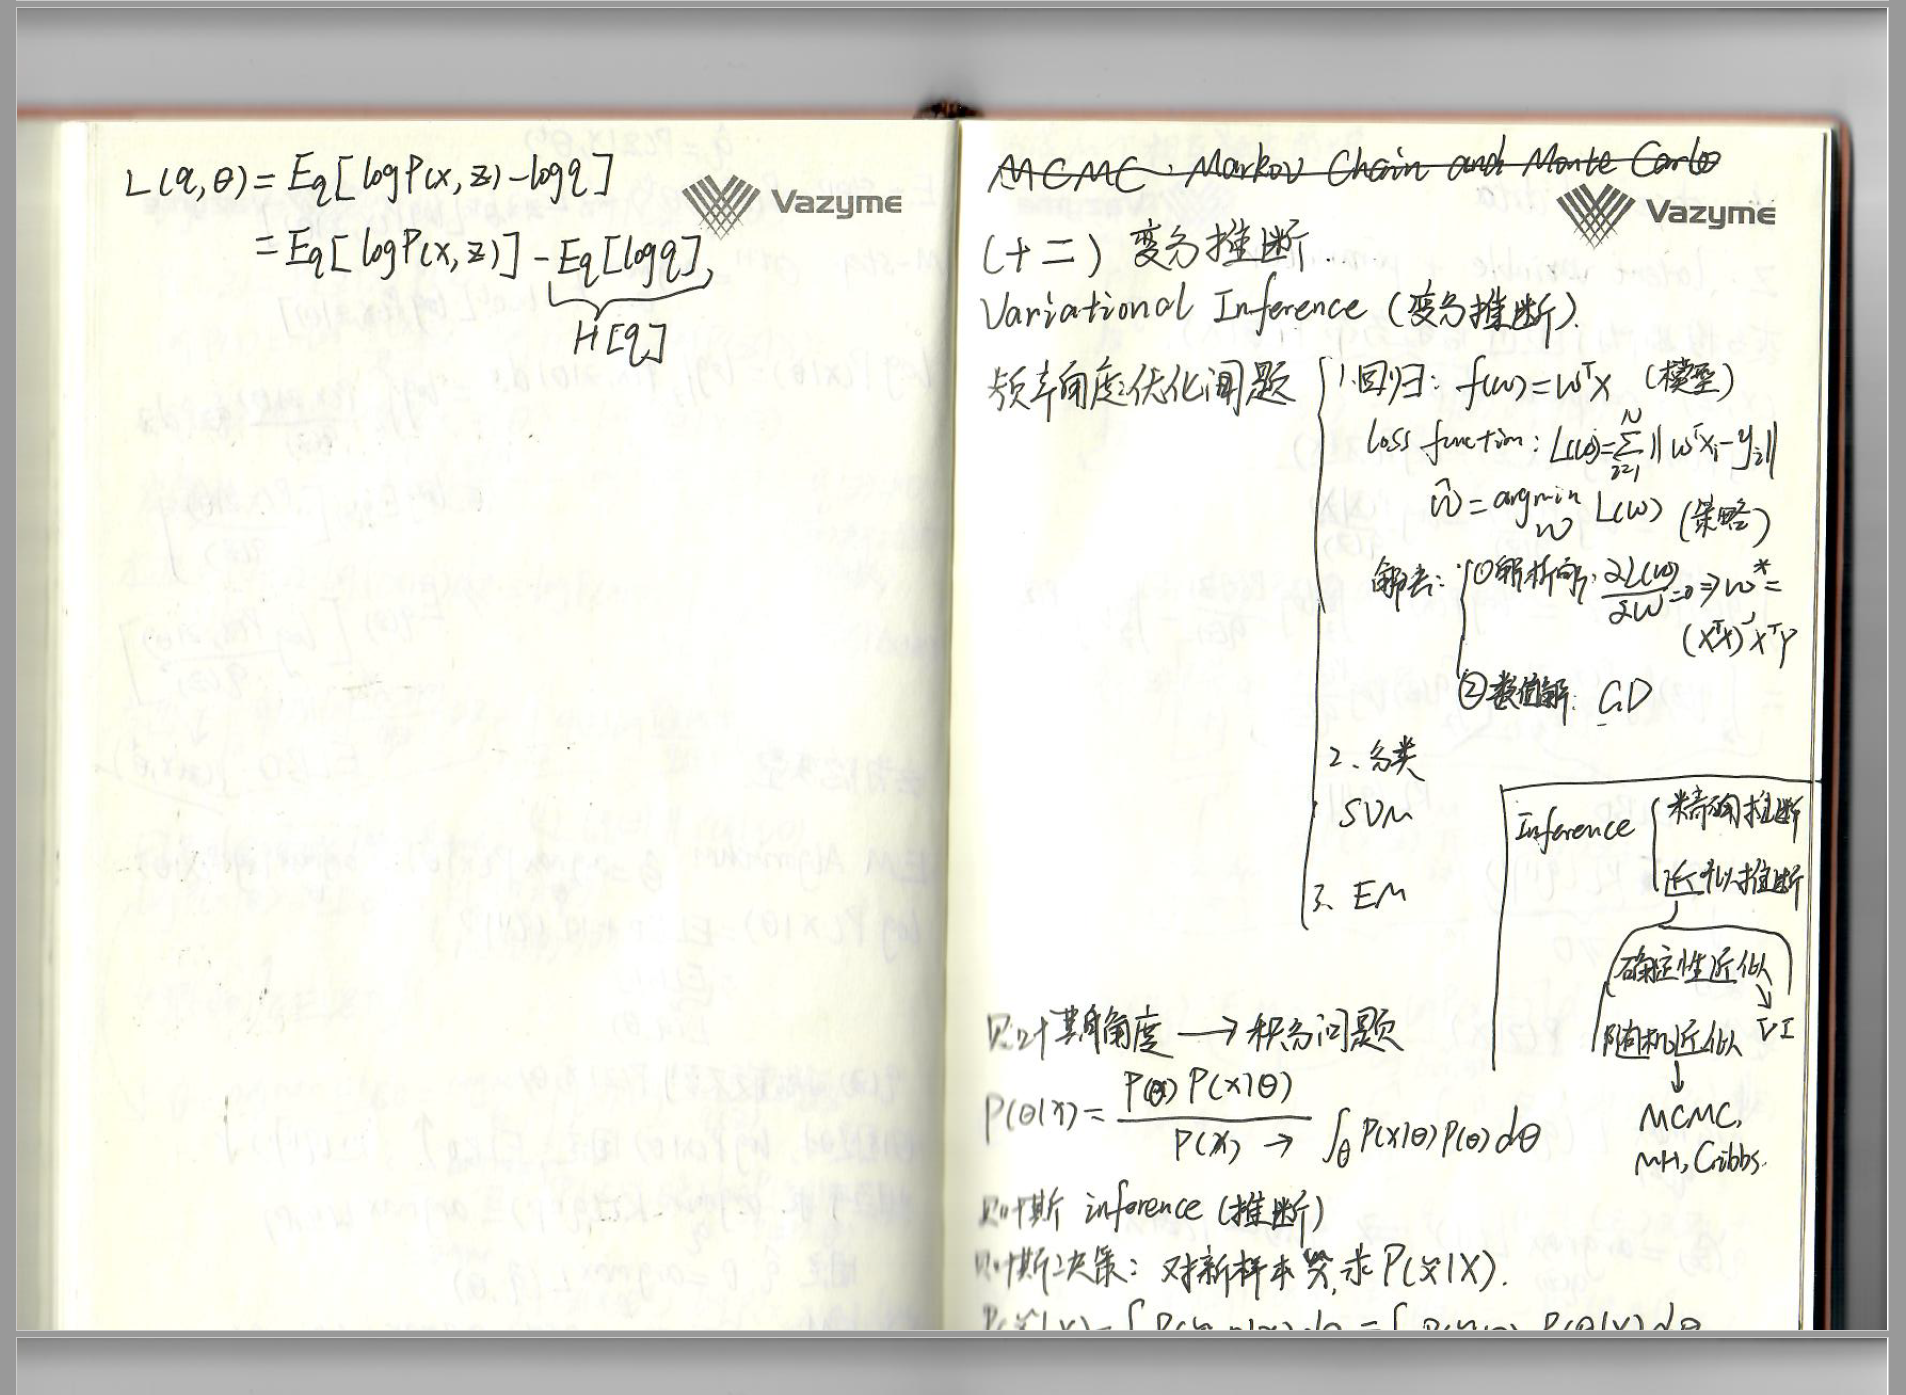 L(q,θ) = Eq[logP(x,z) - logq]
= Eq[logP(x,z)] - Eq[logq],
H[q]
Vazyme
MCMC: Markov Chain and Monte Carlo
Vazyme
(十二) 变分推断.
Variational Inference (变分推断).
频率角度:优化问题
1.回归: f(w)=wᵀx (模型)
loss function: L(w)=∑_{i=1}^{N} ||wᵀxᵢ-yᵢ||
ŵ = argmin_w L(w) (策略)
解法: ①解析解: ∂L(w)/∂w=0 ⇒ w* =
(XᵀX)⁻¹XᵀY
②数值解: GD
2、分类
SVM
3、EM
Inference
精确推断
近似推断
确定性近似
↘ VI
随机近似
↓
MCMC,
MH, Gibbs.
贝叶斯角度 → 积分问题
P(θ|x) = P(θ)P(x|θ) / P(x) → ∫_θ P(x|θ)P(θ)dθ
贝叶斯 inference (推断)
贝叶斯决策: 对新样本x̃,求P(x̃|X).